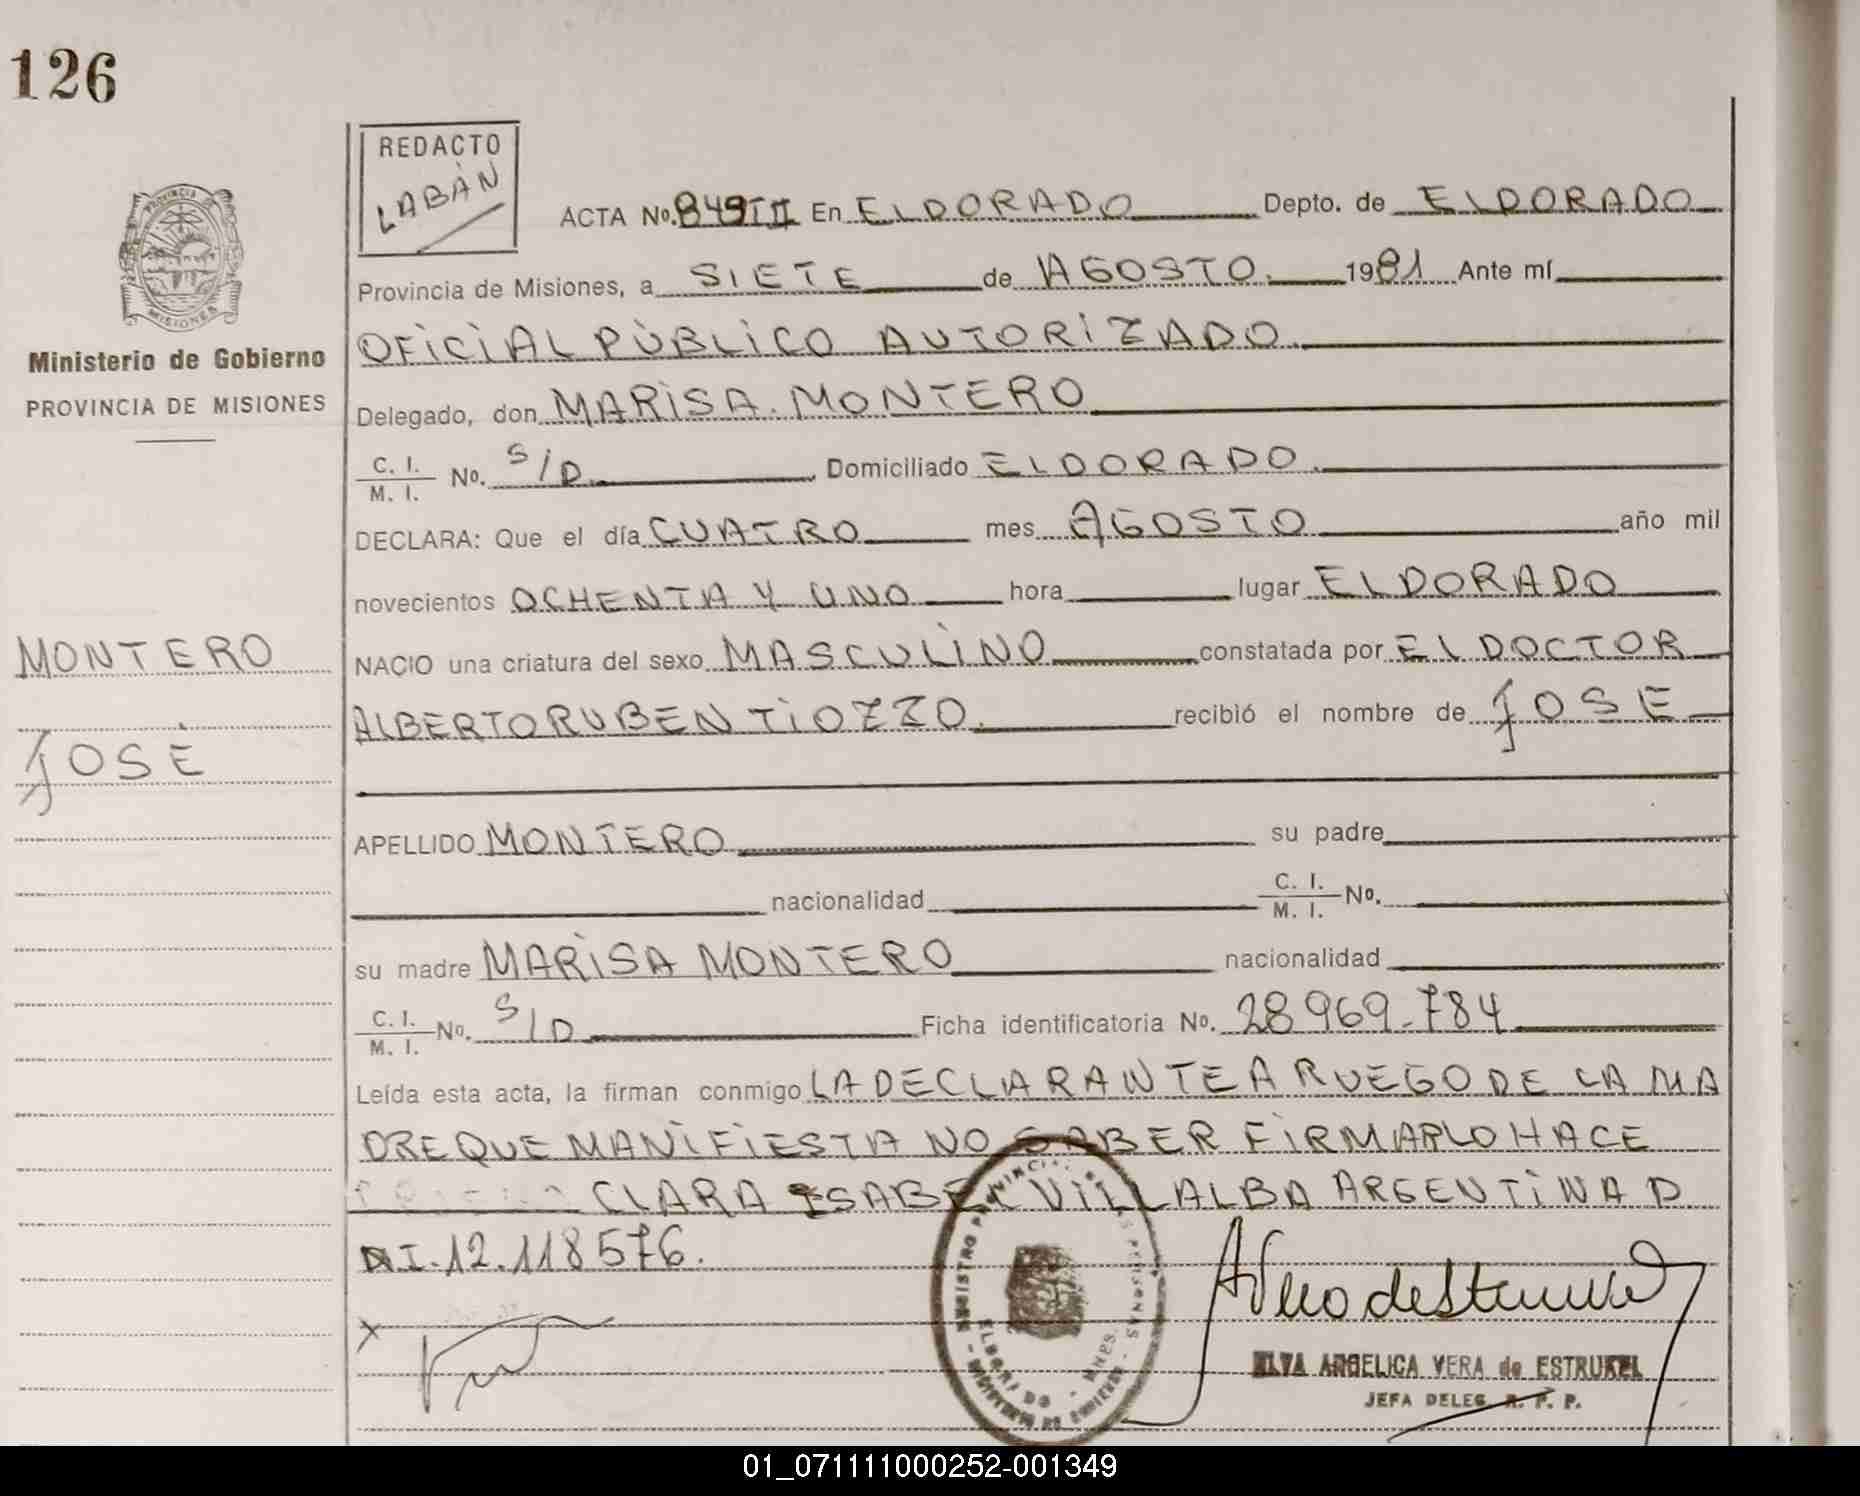 126
REDACTO
LABÁN
ACTA No. 849 III En ELDORADO Depto. de ELDORADO
Provincia de Misiones, a SIETE de AGOSTO 1981 Ante mí
OFICIAL PÚBLICO AUTORIZADO
Ministerio de Gobierno
PROVINCIA DE MISIONES
Delegado, don MARISA MONTERO
C. I.
M. I. No. S/D Domiciliado ELDORADO
DECLARA: Que el día CUATRO mes AGOSTO año mil
novecientos OCHENTA Y UNO hora lugar ELDORADO
MONTERO
NACIO una criatura del sexo MASCULINO constatada por EL DOCTOR
ALBERTO RUBEN TIOZZO recibió el nombre de JOSE
JOSÉ
APELLIDO MONTERO su padre
nacionalidad C. I.
M. I. No.
su madre MARISA MONTERO nacionalidad
C. I.
M. I. No. S/D Ficha identificatoria No. 28969.784
Leída esta acta, la firman conmigo LA DECLARANTE A RUEGO DE LA MA
DRE QUE MANIFIESTA NO SABER FIRMAR LO HACE
CLARA ISABEL VILLALBA ARGENTINA D
NI. 12.118576.
X
ELVA ANGELICA VERA de ESTRUKEL
JEFA DELEG. R. P. P.
01_071111000252-001349